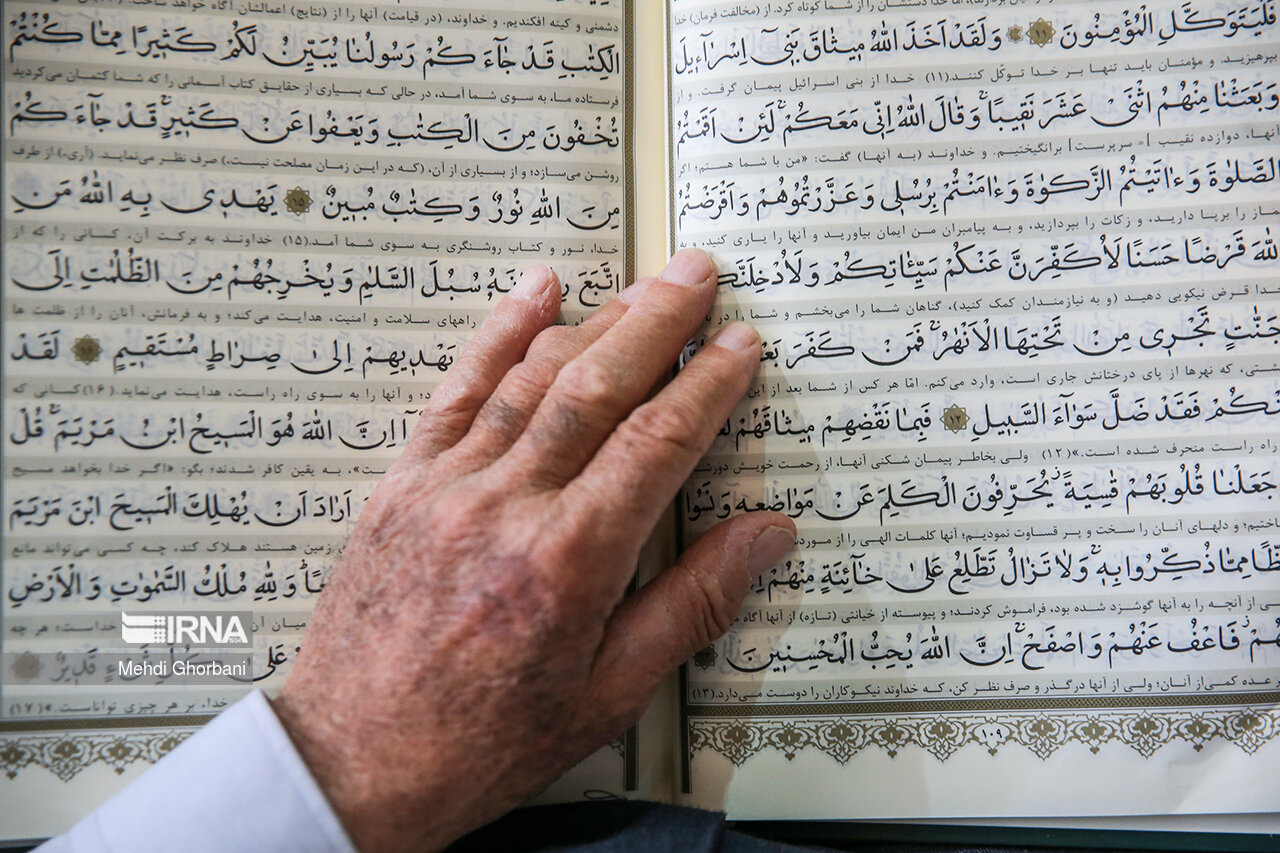 فَلْيَتَوَكَّلِ الْمُؤْمِنُونَ ﴿١١﴾ وَلَقَدْ اَخَذَ اللّٰهُ مِيثَاقَ بَنِىٓ اِسْرَآءِيلَ
بپرهیزید. و مؤمنان باید تنها بر خدا توکّل کنند!(۱۱) خدا از بنی اسرائیل پیمان گرفت. و از
وَبَعَثْنَا مِنْهُمُ اثْنَىْ عَشَرَ نَقِيبًا وَقَالَ اللّٰهُ اِنِّى مَعَكُمْ لَئِنْ اَقَمْتُمُ
آنها، دوازده نقیب [= سرپرست] برانگیختیم. و خداوند (به آنها) گفت: «من با شما هستم؛ اگر
الصَّلٰوةَ وَءَاتَيْتُمُ الزَّكٰوةَ وَءَامَنْتُمْ بِرُسُلِى وَعَزَّرْتُمُوهُمْ وَاَقْرَضْتُمُ
نماز را برپا دارید، و زکات را بپردازید، و به پیامبران من ایمان بیاورید و آنها را یاری کنید، و به
اللّٰهَ قَرْضًا حَسَنًا لَاُكَفِّرَنَّ عَنْكُمْ سَيِّـَٔاتِكُمْ وَلَاُدْخِلَنَّكُمْ
خدا قرض نیکویی دهید (و به نیازمندان کمک کنید)، گناهان شما را می‌بخشم و شما را در
جَنّٰتٍ تَجْرِى مِنْ تَحْتِهَا الْاَنْهٰرُ فَمَنْ كَفَرَ
بهشتی، که نهرها از پای درختانش جاری است، وارد می‌کنم. امّا هر کس از شما بعد از این
مِنْكُمْ فَقَدْ ضَلَّ سَوَآءَ السَّبِيلِ ﴿١٢﴾ فَبِمَا نَقْضِهِمْ مِيثَاقَهُمْ
راه راست منحرف شده است.»(۱۲) ولی بخاطر پیمان شکنی آنها، از رحمت خویش
جَعَلْنَا قُلُوبَهُمْ قٰسِيَةً يُحَرِّفُونَ الْكَلِمَ عَنْ مَوَاضِعِهِ وَنَسُوا
ساختیم؛ و دلهای آنان را سخت و پر قساوت نمودیم؛ آنها کلمات الهی را از
حَظًّا مِمَّا ذُكِّرُوا بِهِ وَلَا تَزَالُ تَطَّلِعُ عَلٰى خَآئِنَةٍ مِنْهُمْ
از آنچه را به آنها گوشزد شده بود، فراموش کردند؛ و پیوسته از خیانتی (تازه) از آنها آگاه
مِنْهُمْ فَاعْفُ عَنْهُمْ وَاصْفَحْ اِنَّ اللّٰهَ يُحِبُّ الْمُحْسِنِينَ
عده کمی از آنان؛ ولی از آنها درگذر و صرف نظر کن، که خداوند نیکوکاران را دوست می‌دارد.(۱۳)
۱۰۹
دشمنی و کینه افکندیم. و خداوند، (در قیامت) آنها را از (نتایج) اعمالشان آگاه خواهد ساخت.
الْكِتٰبِ قَدْ جَآءَكُمْ رَسُولُنَا يُبَيِّنُ لَكُمْ كَثِيرًا مِمَّا كُنْتُمْ
فرستاده ما، به سوی شما آمد، در حالی که بسیاری از حقایق کتاب آسمانی را که شما کتمان می‌کردید
تُخْفُونَ مِنَ الْكِتٰبِ وَيَعْفُوا عَنْ كَثِيرٍ قَدْ جَآءَكُمْ
روشن می‌سازد؛ و از بسیاری از آن، (که در این زمان مصلحت نیست)، صرف نظر می‌نماید. (آری،) از طرف
مِنَ اللّٰهِ نُورٌ وَكِتٰبٌ مُبِينٌ ﴿١٥﴾ يَهْدِى بِهِ اللّٰهُ مَنِ
خدا، نور و کتاب روشنگری به سوی شما آمد.(۱۵) خداوند به برکت آن، کسانی را که از
اتَّبَعَ رِضْوَانَهُ سُبُلَ السَّلٰمِ وَيُخْرِجُهُمْ مِنَ الظُّلُمٰتِ اِلَى
راههای سلامت و امنیت، هدایت می‌کند؛ و به فرمانش، آنان را از ظلمت ها
وَيَهْدِيهِمْ اِلٰى صِرَاطٍ مُسْتَقِيمٍ ﴿١٦﴾ لَقَدْ
و آنها را به سوی راه راست، هدایت می‌نماید.(۱۶) کسانی که
اِنَّ اللّٰهَ هُوَ الْمَسِيحُ ابْنُ مَرْيَمَ قُلْ
است»، به یقین کافر شدند؛ بگو: «اگر خدا بخواهد مسیح
اَرَادَ اَنْ يُهْلِكَ الْمَسِيحَ ابْنَ مَرْيَمَ
زمین هستند هلاک کند، چه کسی می‌تواند مانع
وَلِلّٰهِ مُلْكُ السَّمٰوٰتِ وَالْاَرْضِ
میان آن
خداست؛ هر چه
IRNA
Mehdi Ghorbani
عَلٰى كُلِّ شَىْءٍ قَدِيرٌ
خدا، بر هر چیزی تواناست.»(۱۷)